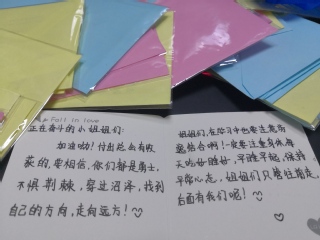 Fall in love
正在奋斗的小姐姐们:
加油呦!付出总会有收
获的,要相信,你们都是勇士,
不惧荆棘,穿过沼泽,找到
自己的方向,走向远方!
姐姐们,在学习中也要注意劳
逸结合啊!一定要注意身体,每
天吃好睡好,早睡早起,保持
平常心态,姐姐们只管往前走,
后面有我们呢!